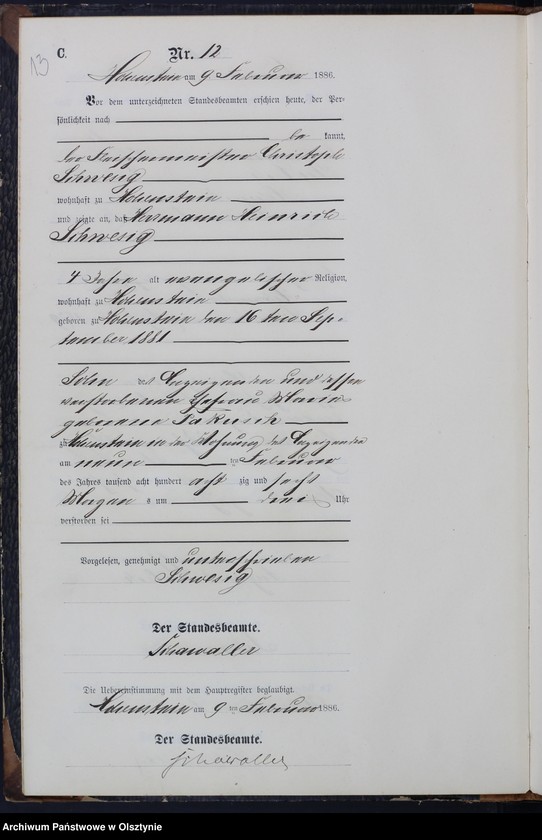 13
C.
Nr. 12
Hohenstein am 9 Februar 1886.
Vor dem unterzeichneten Standesbeamten erschien heute, der Per-
sönlichkeit nach
be kannt,
der Christoph
Schwesig
wohnhaft zu Hohenstein
und zeigte an, daß Hermann Heinrich
Schwesig
4 Jahre alt evangelischer Religion,
wohnhaft zu Hohenstein
geboren zu Hohenstein den 16 ten Sep-
tember 1881
Sohn des Anzeigenden und dessen
verstorbenen Ehefrau Marie
geborene
zu Hohenstein in der Wohnung des Anzeigenden
am neun ten Februar
des Jahres tausend acht hundert acht zig und sechs
Morgen s um drei Uhr
verstorben sei
Vorgelesen, genehmigt und unterschrieben
Schwesig
Der Standesbeamte.
Schawaller
Die Uebereinstimmung mit dem Hauptregister beglaubigt.
Hohenstein am 9 ten Februar 1886.
Der Standesbeamte.
Schawaller
Archiwum Państwowe w Olsztynie